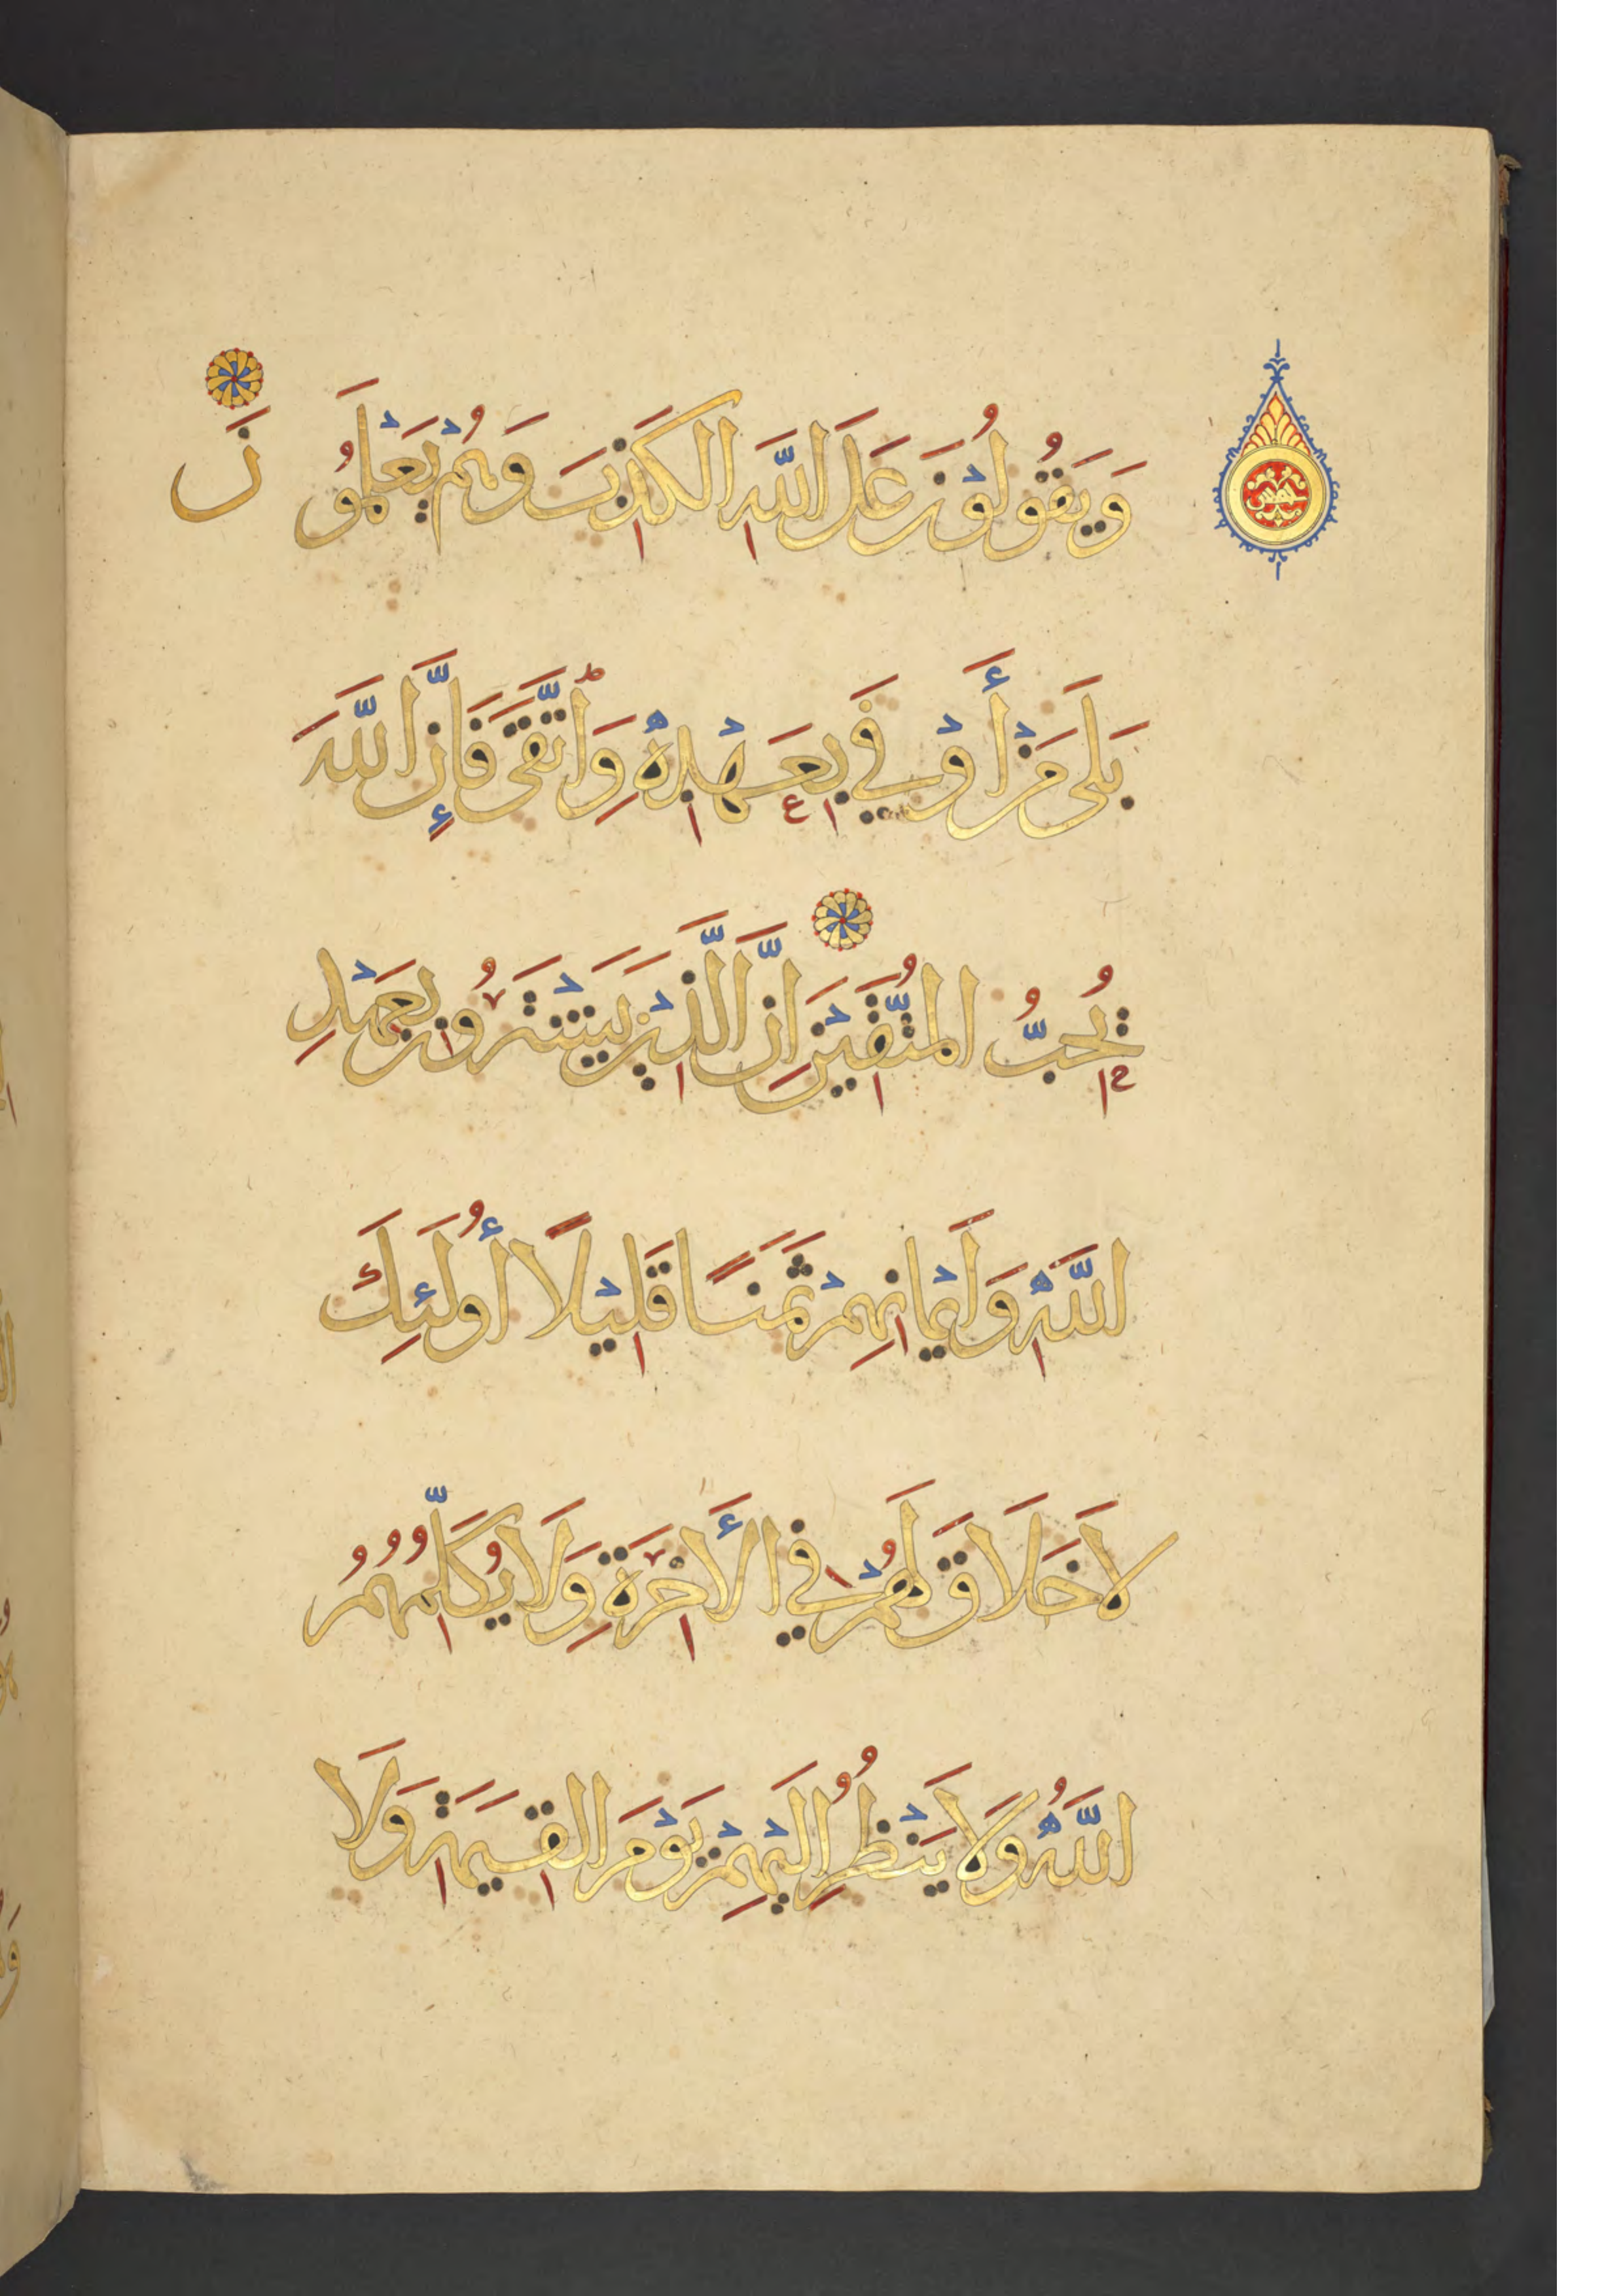 وَيَقُولُونَ عَلَى اللَّهِ الْكَذِبَ وَهُمْ يَعْلَمُونَ
بَلَى مَنْ أَوْفَى بِعَهْدِهِ وَاتَّقَى فَإِنَّ اللَّهَ
يُحِبُّ الْمُتَّقِينَ إِنَّ الَّذِينَ يَشْتَرُونَ بِعَهْدِ
اللَّهِ وَأَيْمَانِهِمْ ثَمَنًا قَلِيلًا أُولَئِكَ
لَا خَلَاقَ لَهُمْ فِي الْأَخِرَةِ وَلَا يُكَلِّمُهُمُ
اللَّهُ وَلَا يَنْظُرُ إِلَيْهِمْ يَوْمَ الْقِيَمَةِ وَلَا